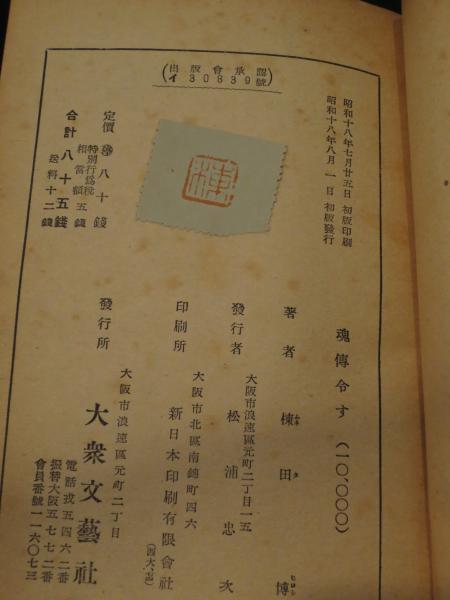 (出版會承認
イ30839號)
昭和十八年七月廿五日 初版印刷
昭和十八年八月一日 初版發行
定價 八十錢
特別行爲税
相當額 五錢
合計 八十五錢
送料十二錢
魂傳令す (一〇,〇〇〇)
著者 棟田博
ムネ タ ヒロシ
大阪市浪速區元町二丁目一五
發行者 松浦忠次
大阪市北區南錦町四六
印刷所 新日本印刷有限會社
大阪市浪速區元町二丁目
發行所 大衆文藝社
電話戎五四六二番
振替大阪五七七二番
會員番號一一六〇七三